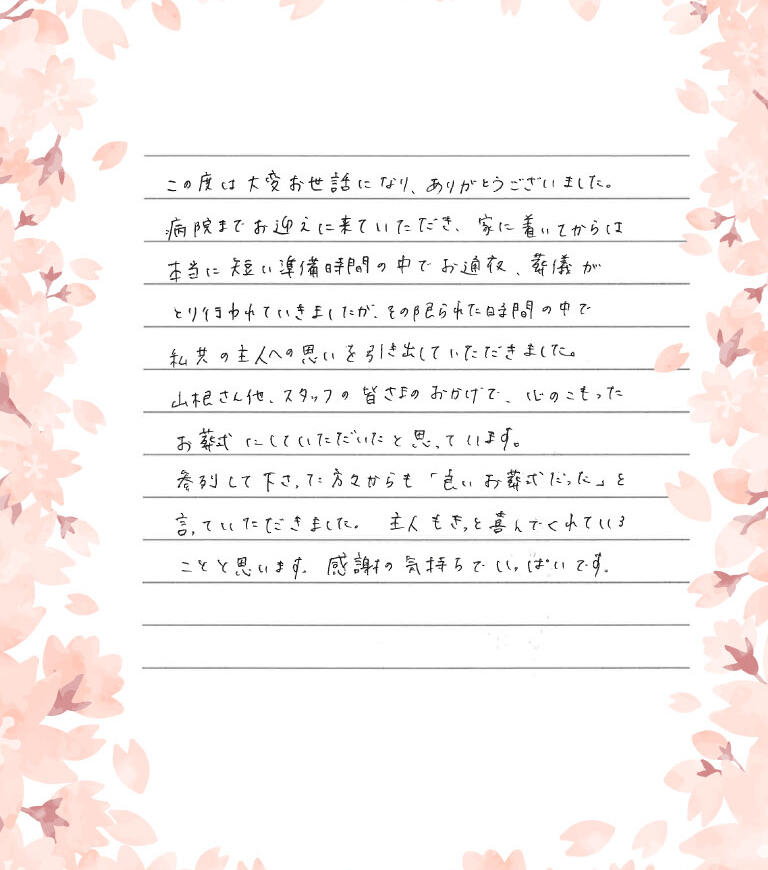 この度は大変お世話になり、ありがとうございました。
病院までお迎えに来ていただき、家に着いてからは
本当に短い準備時間の中でお通夜、葬儀が
とり行われていきましたが、その限られた時間の中で
私共の主人への思いを引き出していただきました。
山根さん他、スタッフの皆さまのおかげで、心のこもった
お葬式にしていただいたと思っています。
参列して下さった方々からも「良いお葬式だった」と
言っていただきました。 主人もきっと喜んでくれている
ことと思います。感謝の気持ちでいっぱいです。